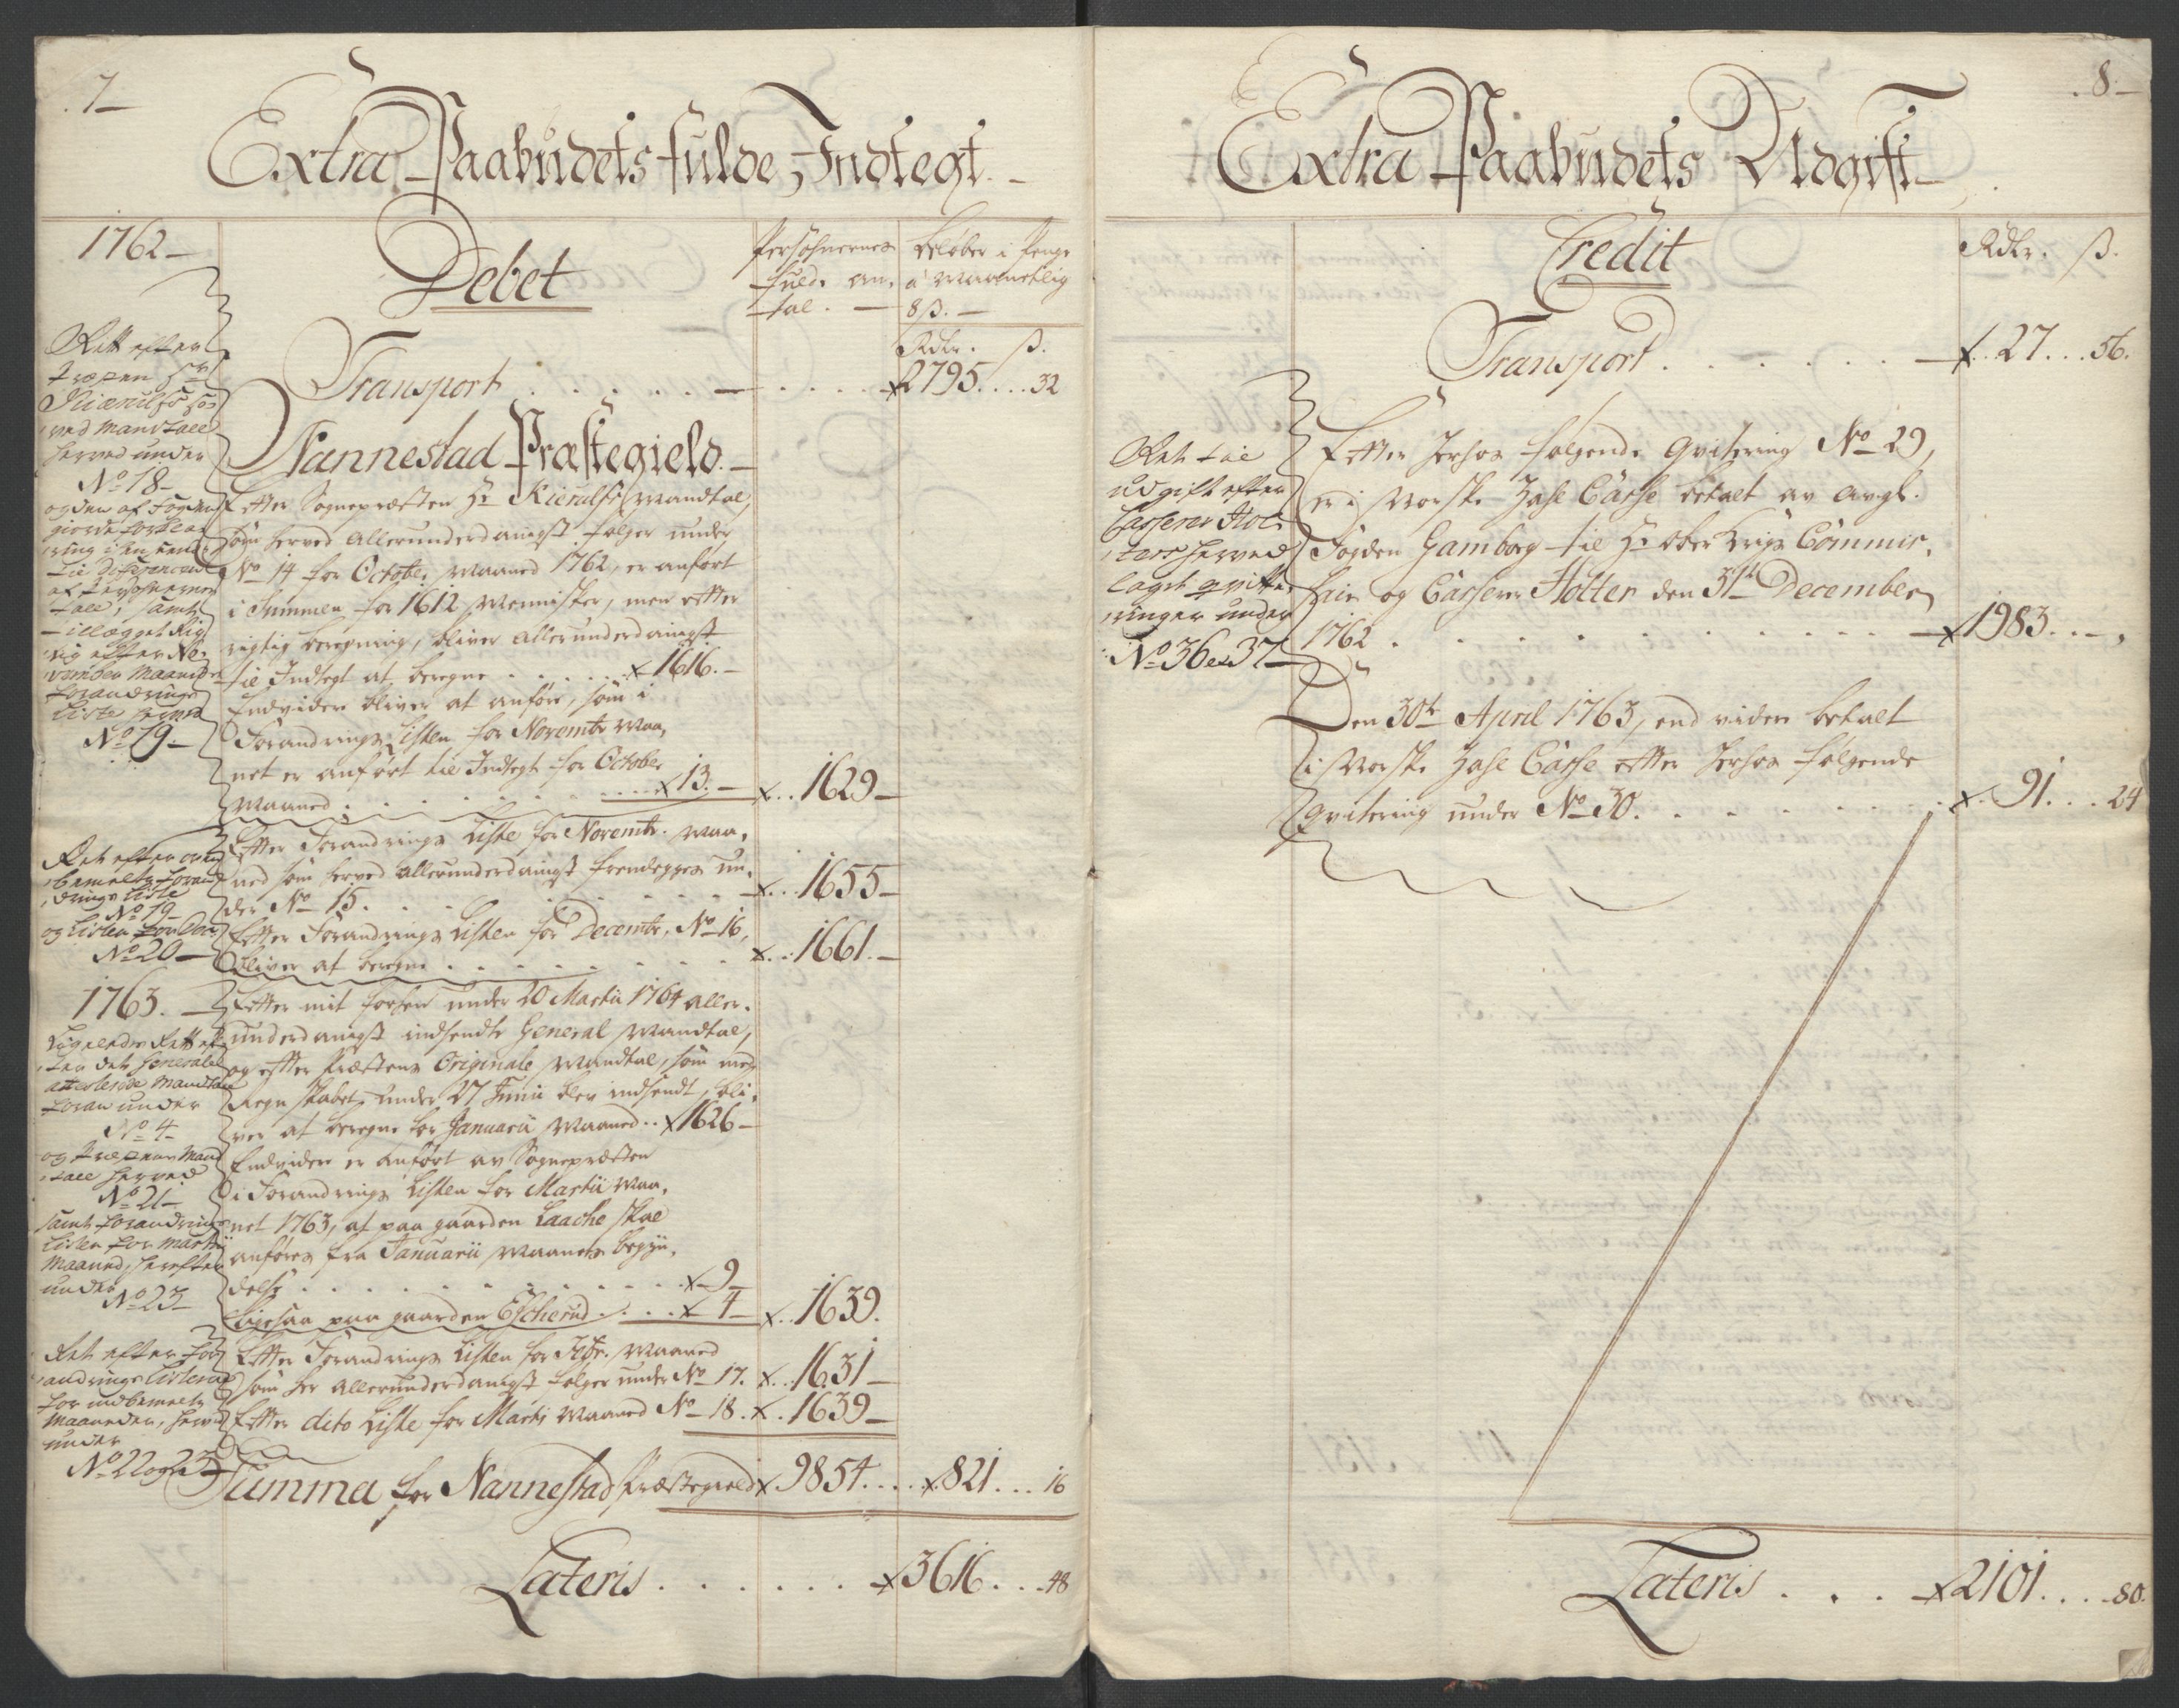 7
Extra Paabudets fulde Indtegt.
1762
Debet
Persohnernes
fulde an-
tal.
beløber i Penge
a Maanetlig
8 ß.
Rdlr. ß.
Transport . . . . . . 2795 . . . 32
Rett efter
Præsten Hr
ved Mandtall
herved under
No 18
og den af Fogden
giorde forklar
ring
af Persohnernes
tall, samt
efter No-
vember Maanedes
Forandrings
Liste herved
No 19
Nannestad Præstegield.
Efter Sognepræsten Hr Kierulfs Mandtal,
som herved allerunderdanigst følger under
No 14 for October Maaned 1762, er anført
i Summen for 1612 Mennisker, men efter
rigtig beregning, bliver allerunderdanigst
til Indtegt at beregne . . . . . 1616.
Endvidere bliver at anføre, som i
Forandrings Listen for Novembr Maa-
net er anført til Indtegt for October
Maaned . . . . . . . 13. 1629
Ret efter oven
bemelte Foran
drings Liste
No 19
og Listen for Decr
No 20
Efter Forandrings Liste for Novembr. Maa-
ned som herved allerunderdanigst fremlegges un-
der No 15. . . . . . . 1655
Efter Forandrings Listen for Decembr. No 16,
bliver at beregne . . . . . . 1661.
1763.
Ligeledes Rett ef-
ter det Generale
attesterede Mandtal
foran under
No 4
og Præstens Mand
tall herved
No 21
samt Forandrings
Listen for Martii
Maaned, herefter
under
No 23
Efter mit forhen under 20 Martii 1764 aller-
underdanigst indsendte General Mandtal,
og efter Præstens Originale Mandtal, som med
Regnskabet under 27 Junii blev indsendt, bli-
ver at beregne for Januarii Maaned . . 1626
Endvidere er anført av Sognepræsten
i Forandrings Listen for Martii Maa-
net 1763, at paa gaarden Laache skal
anføres fra Januarii Maanets begyn-
delse . . . . . . . . . 9
Ligesaa paa gaarden Escherud . . . . 4 1639.
Ret efter For
andrings Listerne
for indbemelte
Maaneder, herved
under
No 22 og 23
Efter Forandrings Listen for Febr. Maaned
som her allerunderdanigst følger under No 17. 1631
Efter dito Liste for Martij Maaned No 18. 1639
Summa for Nannestad Præstegield 9854 . . . 821 . . . 16
Lateris . . . . . . 3616 . . . 48
8
Extra Paabudets Udgift
Credit
Rdlr. ß.
Transport . . . . . . 27 . . . 56.
Ret til
udgift efter
Casserer Hol-
ters herved
lagte qvitte
ringer under
No 36 et 37
Efter herhos følgende Qvitering No 29,
er i Norske Zahl Casse betalt av avgl.
Fogden Gamborg til Hr Ober Krigs Commis-
sair og Casserer Holter den 31te December
1762 . . . . . . . . . 1983. . .
Den 30te April 1763, end videre betalt
i Norske Zahl Casse efter herhos følgende
Qvitering under No 30. . . . . . 91. . . 24
Lateris . . . 2101 . . . 80.